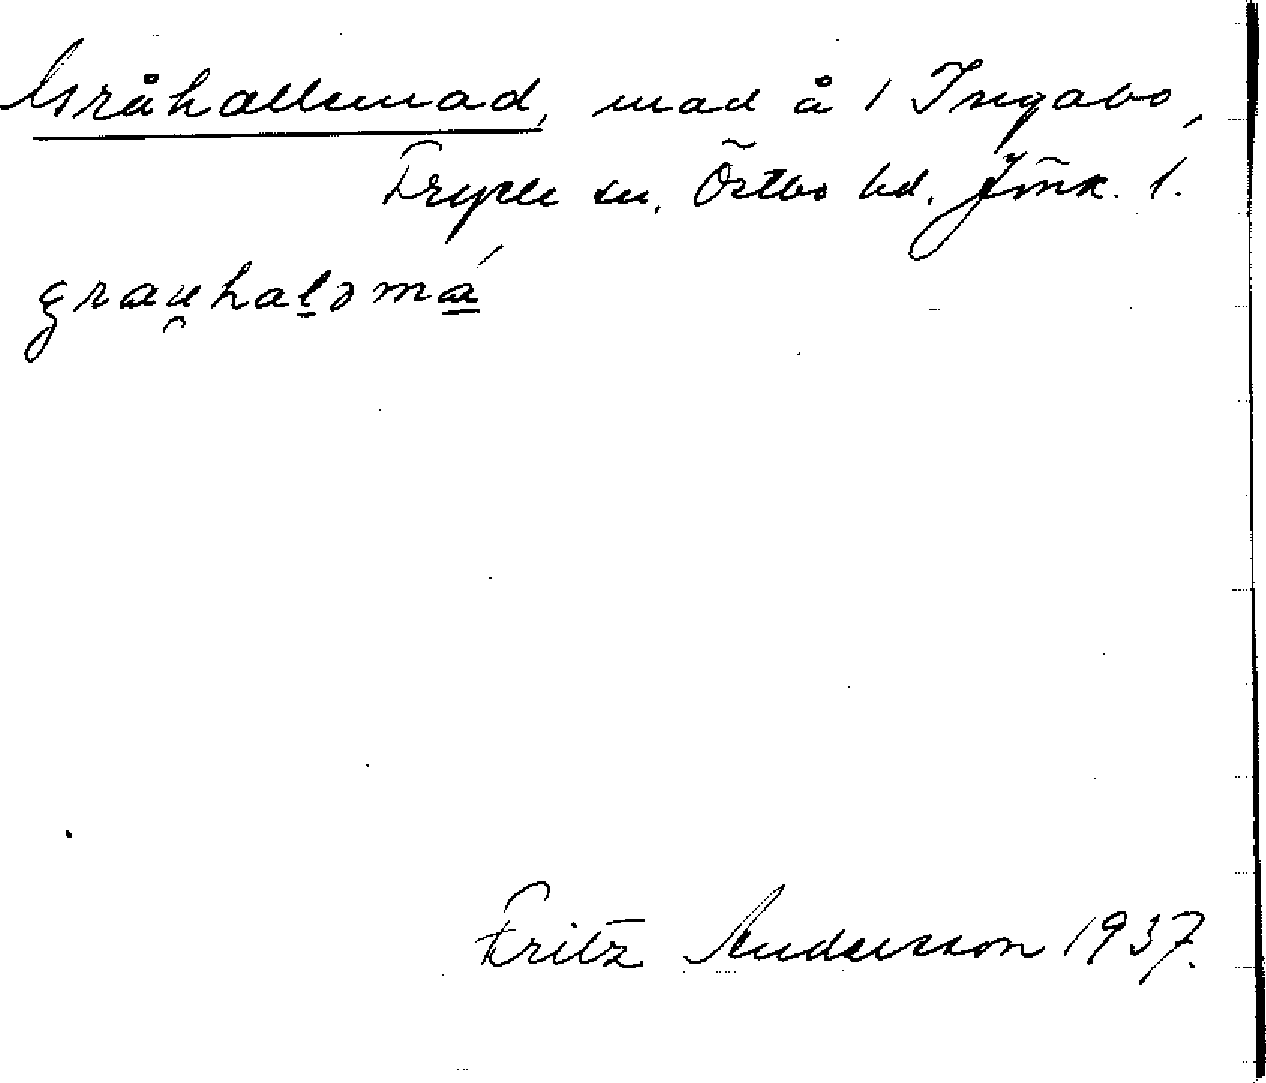 Gråhallemad, mad å 1 Ingabo,
Fryele sn. Östbo hd. Jönk. l.
grau̯halǝmá
Fritz Andersson 1937.